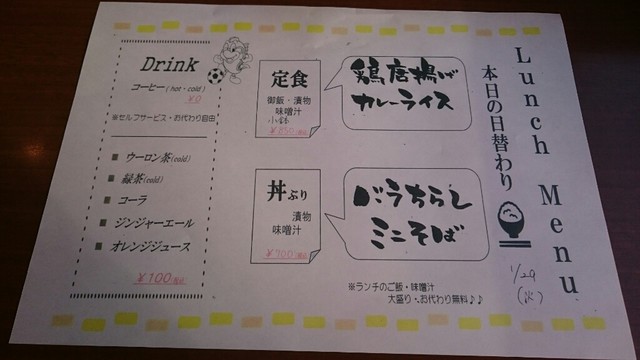 Lunch Menu
本日の日替わり
1/29
(火)
定食
御飯・漬物
味噌汁
小鉢
¥850(税込)
鶏唐揚げ
カレーライス
丼ぶり
漬物
味噌汁
¥700(税込)
バラちらし
ミニそば
※ランチのご飯・味噌汁
大盛り・お代わり無料♪♪
Drink
コーヒー(hot・cold)
¥0
※セルフサービス・お代わり自由
■ ウーロン茶(cold)
■ 緑茶(cold)
■ コーラ
■ ジンジャーエール
■ オレンジジュース
¥100(税込)